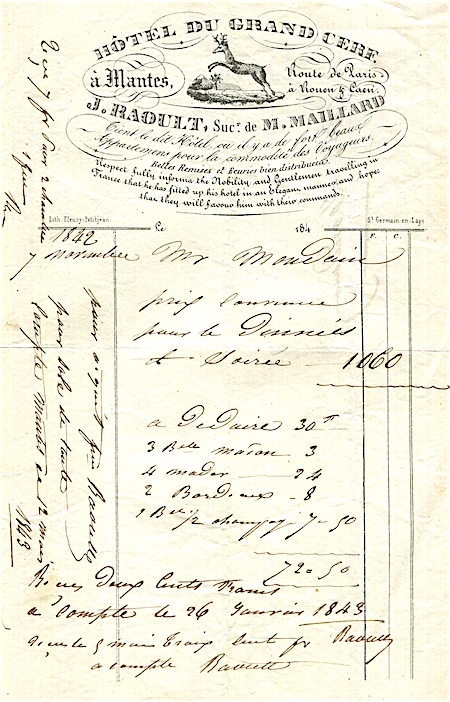 HÔTEL DU GRAND CERF
à Mantes,
Route de Paris
à Rouen & Caen.
J. RAOULT, Sucr. de M. MAILLARD
Tient le dit Hôtel, où il y a de fort beaux
Appartemens pour la commodité des Voyageurs.
Belles Remises et Ecuries bien distribuées.
Respect fully informs the Nobility and Gentlemen travelling in
France that he has fitted up his hotel in an Elegant manner, and hopes
that they will favour him with their commands.
Lith. Fleury-Petitjean
St. Germain-en-Laye
Le 184
F. C.
1842
7 novembre Mr Mondain
prix convenue
pour le Dinnés
et Soirée 1060
a Deduire 30 tt
3 Blle macon 3
4 mader 24
2 Bordeaux - 8
1 Blle 1/2 champag 7 = 50
72 = 50
Reçu Deux Cents Francs
a Compte le 26 Janvier 1843
reçu le 5 mai Trois Cent fr Raoult
a compte Raoult
pour aquit
Raoult
pour solde de toute
Compte Mantes ce 12 mars
1843